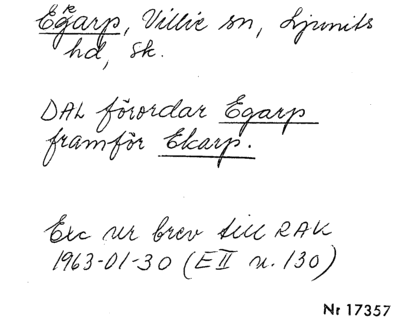 Egarp, Villie sn, Ljunits
hd, Sk.
DAL förordar Egarp
framför Ekarp.
Exc ur brev till RAK
1963-01-30 (EII n. 130)
Nr 17357